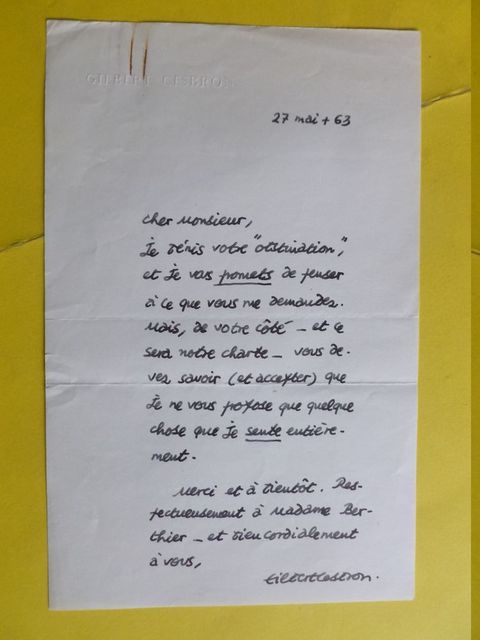 GILBERT CESBRON
27 mai + 63
Cher Monsieur,
Je bénis votre "obstination",
et je vous promets de penser
à ce que vous me demandez.
Mais, de votre côté – et ce
sera notre charte – vous de-
vez savoir (et accepter) que
je ne vous propose que quelque
chose que je sente entière-
ment.
Merci et à bientôt. Res-
pectueusement à Madame Ber-
thier – et bien cordialement
à vous,
Gilbert Cesbron.